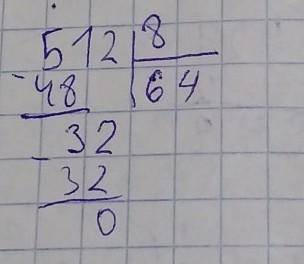 512 8
- 48 64
- 32
32
0